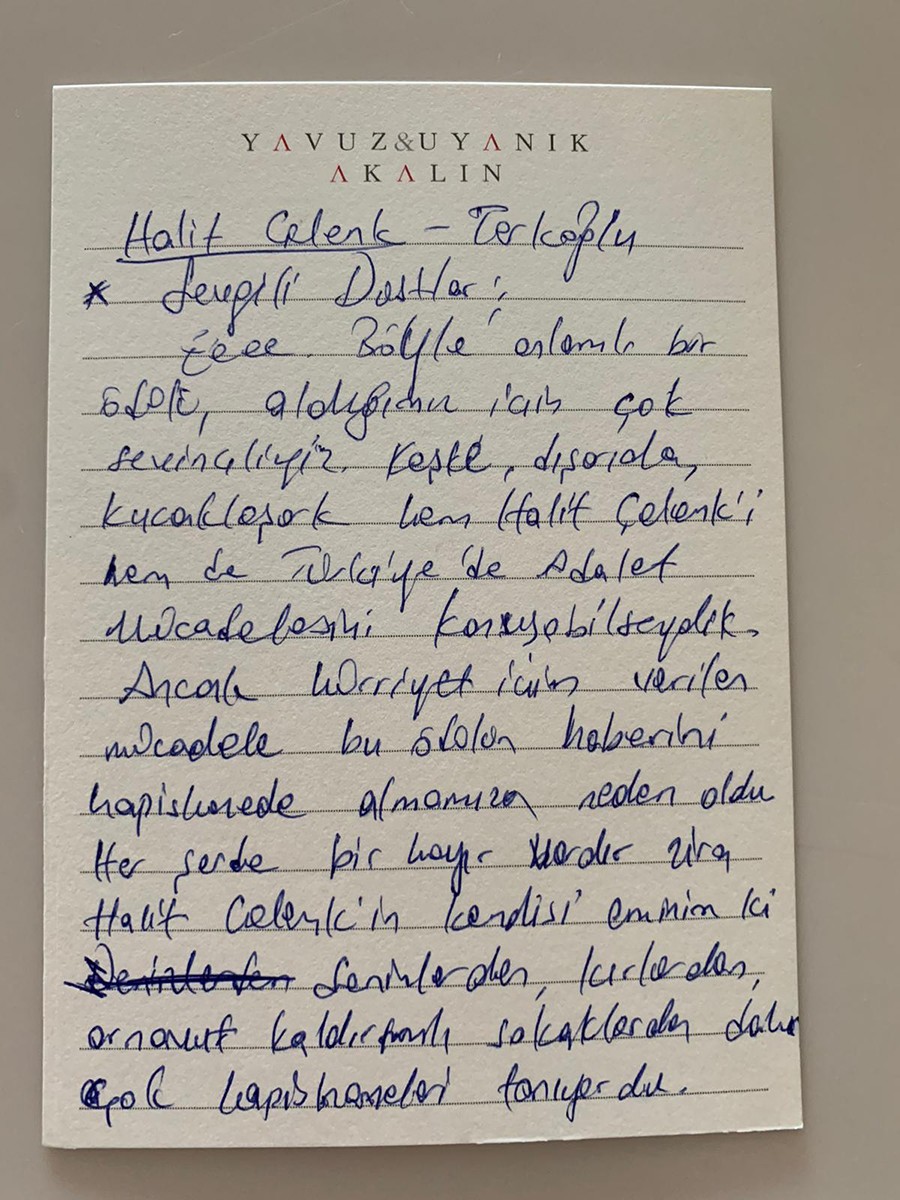 YAVUZ&UYANIK
AKALIN
Halit Çelenk - Terkoğlu
* Sevgili Dostlar;
Böyle anlamlı bir
ödülü, aldığımız için çok
sevinçliyiz. Keşke, dışarıda,
kucaklaşarak hem Halit Çelenk'i
hem de Türkiye'de Adalet
Mücadelesini konuşabilseydik.
Ancak hürriyet için verilen
mücadele bu ödülün haberini
hapishanede almamıza neden oldu
Her şerde bir hayır vardır zira
Halit Çelenk'in kendisi eminim ki
Denizlerden, kırlardan,
arnavut kaldırımlı sokaklardan daha
çok hapishaneleri tanıyordu.